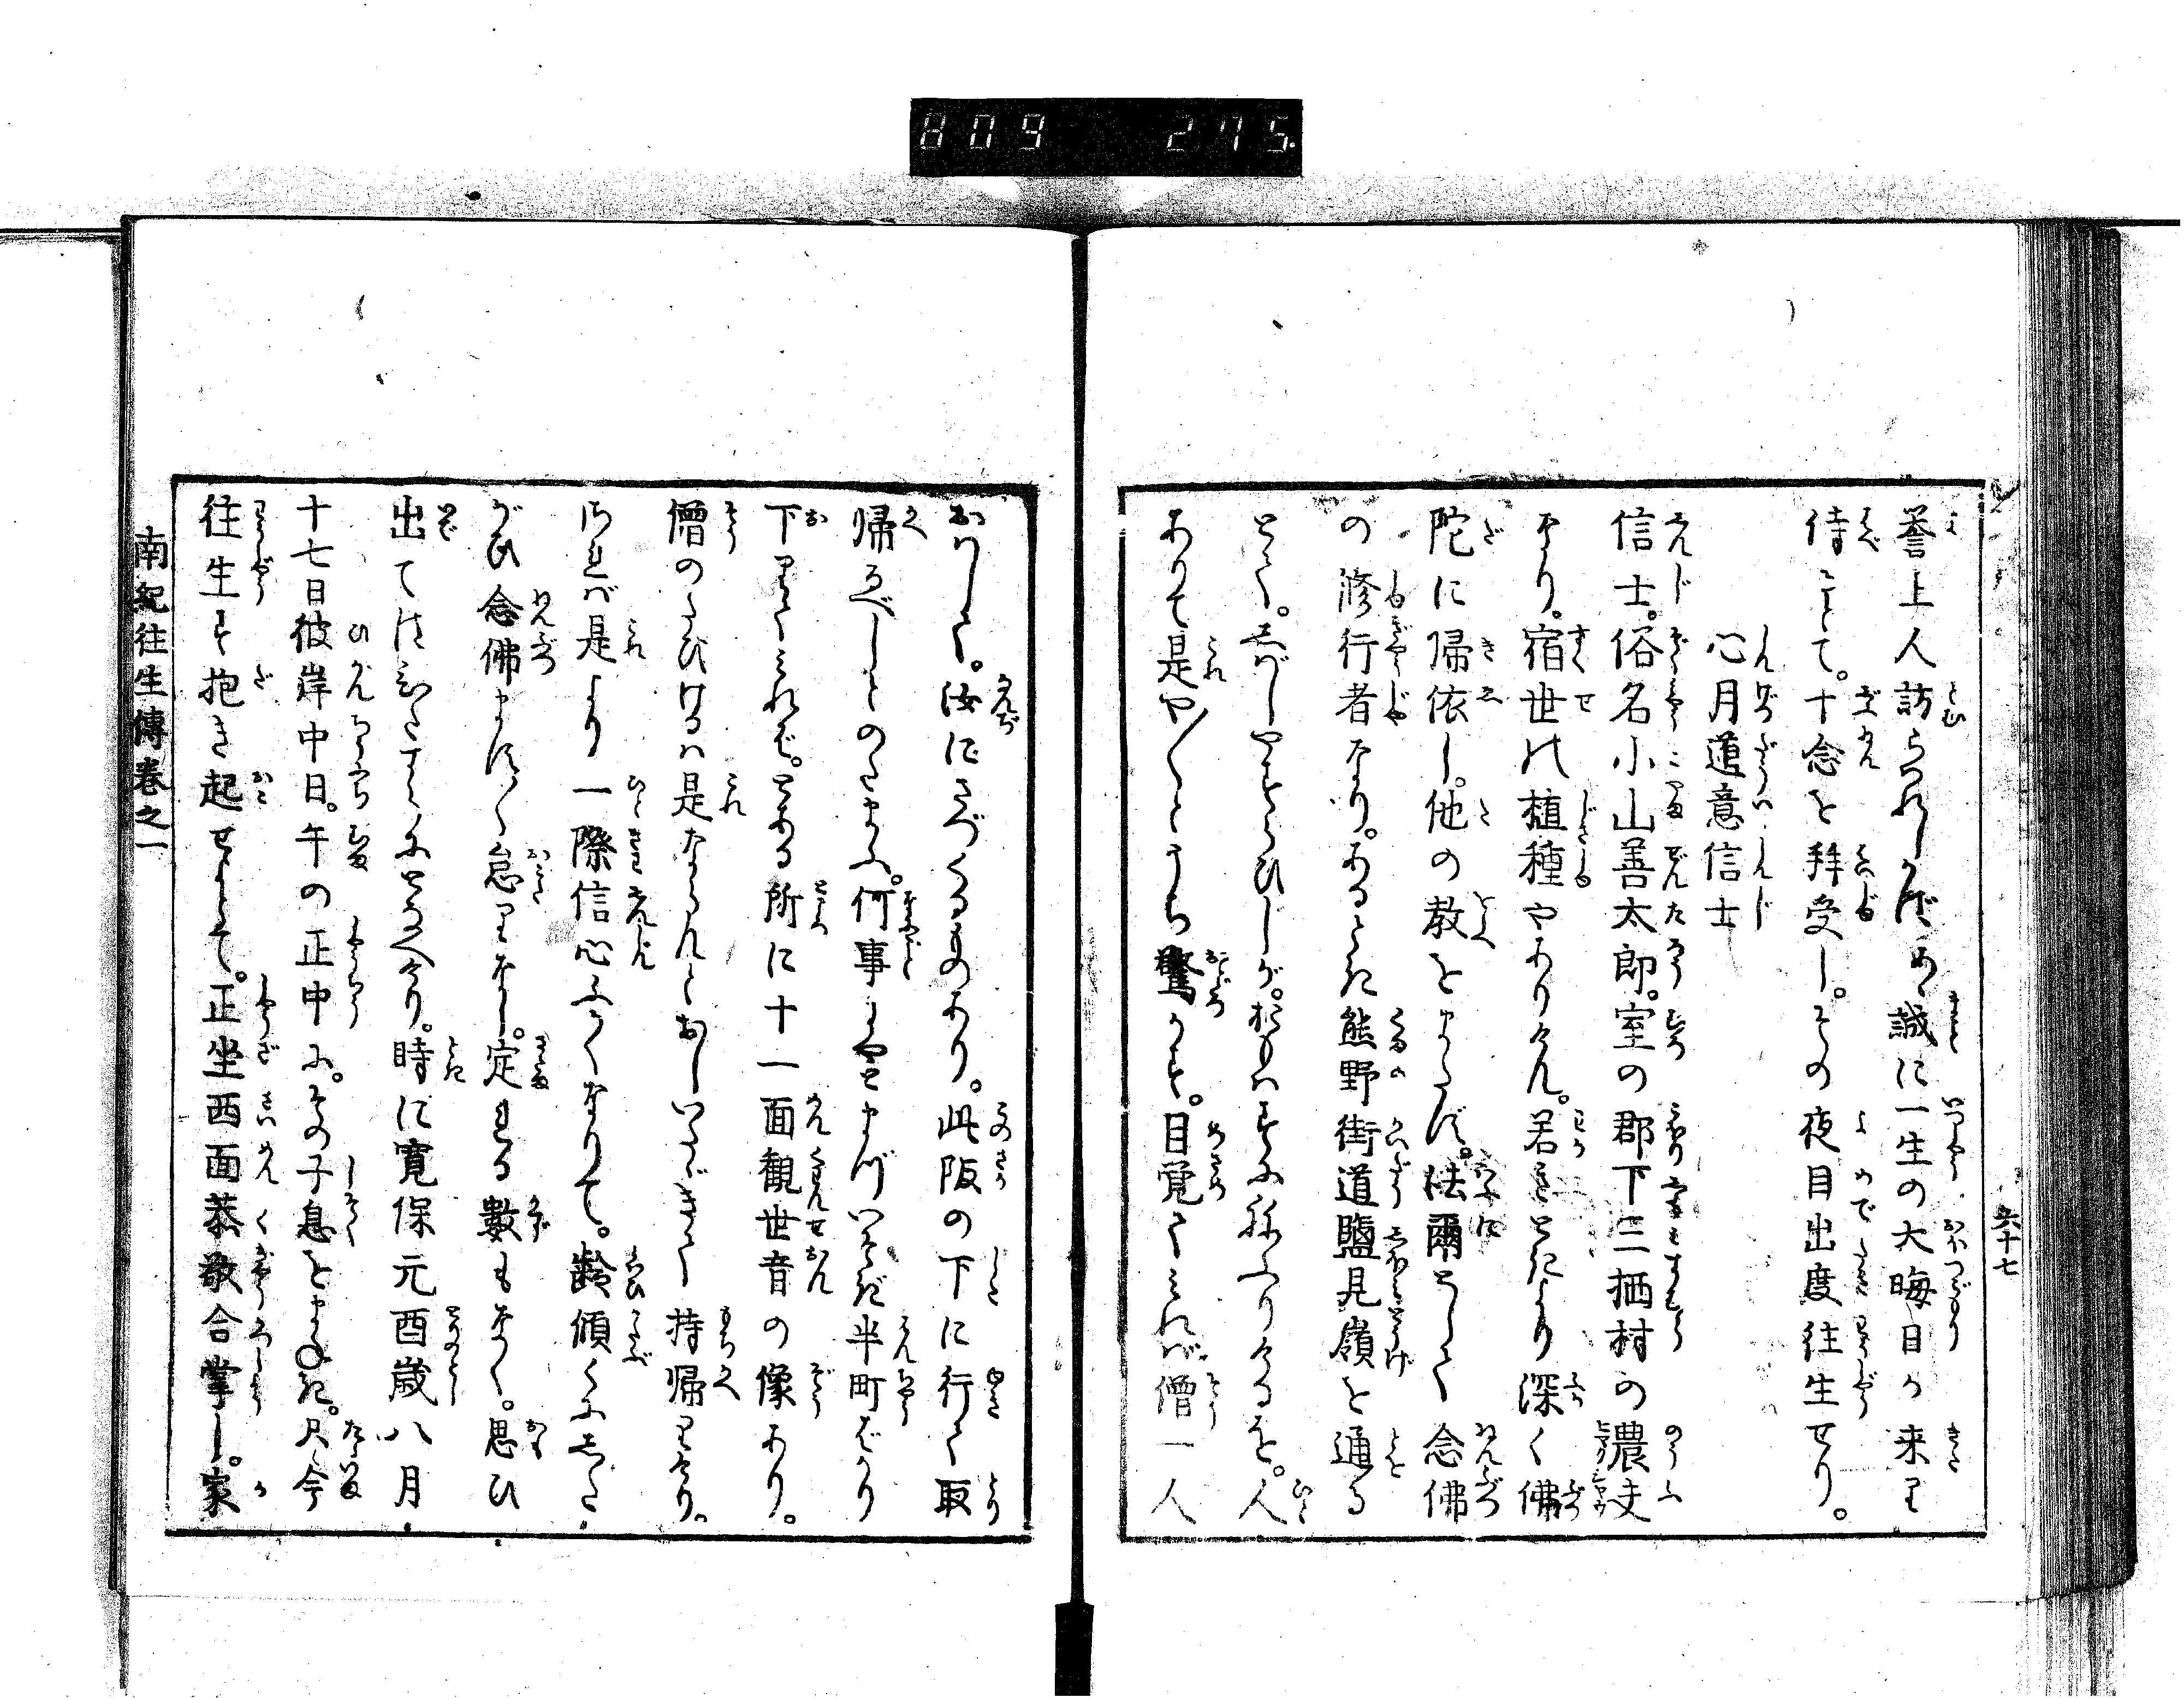 誉上人訪られしかばあゝ誠に一生の大晦日か来り
侍ことて。十念を拝受し。その夜目出度往生せり。
心月道意信士
信士。俗名小山善太郎。室の郡下三栖村の農夫
なり。宿世の植種やありけん。若きときより深く佛
陀に帰依し。他の教をまたず。法爾として念佛
の修行者なり。あるとき熊野街道鹽見嶺を通る
とて。しばしやすらひしが。おもはずもねふりけるを。人
ありて是や〳〵とうち驚かす。目覚てみれば僧一人
おはして。汝にさづくるものあり。此阪の下に行て取
帰るべしとのたまふ。何事にやとまづいそぎ半町ばかり
下りてみれば。とある所に十一面観世音の像あり。
僧のたびけるは是ならんとおしいたゞきて持帰りたり。
されば是より一際信心ふかくなりて。齢傾くにした
がひ念佛ます〳〵怠りなし。定れる數もなく。思ひ
出てはひたすらにとなへけり。時に寛保元酉歳八月
十七日彼岸中日。午の正中に。その子息をまねき。只今
往生す抱き起せよとて。正坐西面恭敬合掌し。家
六十七
南紀往生傳巻之一
809 275.